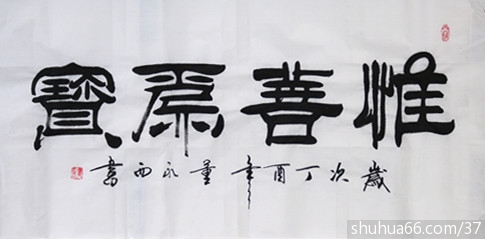 惟善為寶
歲次丁酉年董永西書
shuhua66.com/37